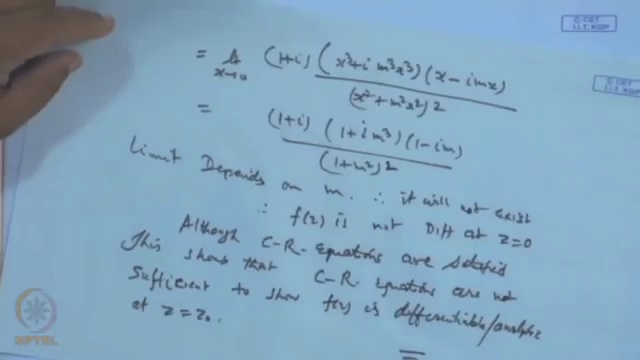 © CET
I.I.T. KGP
© CET
I.I.T. KGP
= lt x→0 (1+i) (x³+i m³x³)(x-imx) / (x²+m²x²)2
= (1+i) (1+i m³)(1-im) / (1+m²)2
Limit Depends on m. ∴ it will not exist
∴ f(z) is not Diff at z=0
Although C-R-Equations are satisfied
This shows that C-R. Equations are not
sufficient to show f(z) is differentiable/analytic
at z=z₀.
NPTEL